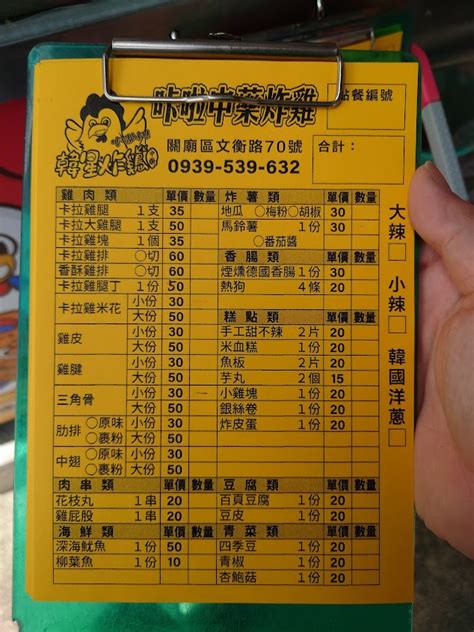 咔啦中藥炸雞
點餐編號
韓星炸雞
關廟區文衡路70號
0939-539-632
合計：
雞肉類 單價 數量
卡拉雞腿 1支 35
卡拉大雞腿 1支 50
卡拉雞塊 1個 35
卡拉雞排 〇切 60
香酥雞排 〇切 60
卡拉雞腿丁 1份 50
卡拉雞米花 小份 30
大份 50
雞皮 小份 30
大份 50
雞腱 小份 30
大份 50
三角骨 小份 30
大份 50
肋排 〇原味 小份 30
〇裹粉 大份 50
中翅 〇原味 小份 30
〇裹粉 大份 50
肉串類 單價 數量
花枝丸 1串 20
雞屁股 1串 20
海鮮類 單價 數量
深海魷魚 1份 50
柳葉魚 1份 10
炸薯類 單價 數量
地瓜 〇梅粉 〇胡椒 30
馬鈴薯 1份 30
〇番茄醬
香腸類 單價 數量
煙燻德國香腸 1份 30
熱狗 4條 20
糕點類 單價 數量
手工甜不辣 2片 20
米血糕 1份 20
魚板 2片 20
芋丸 2個 15
小雞塊 1份 20
銀絲卷 1份 20
炸皮蛋 1份 20
豆腐類 單價 數量
百頁豆腐 1份 20
豆皮 1份 20
青菜類 單價 數量
四季豆 1份 20
青椒 1份 20
杏鮑菇 1份 20
大辣
小辣
韓國洋蔥